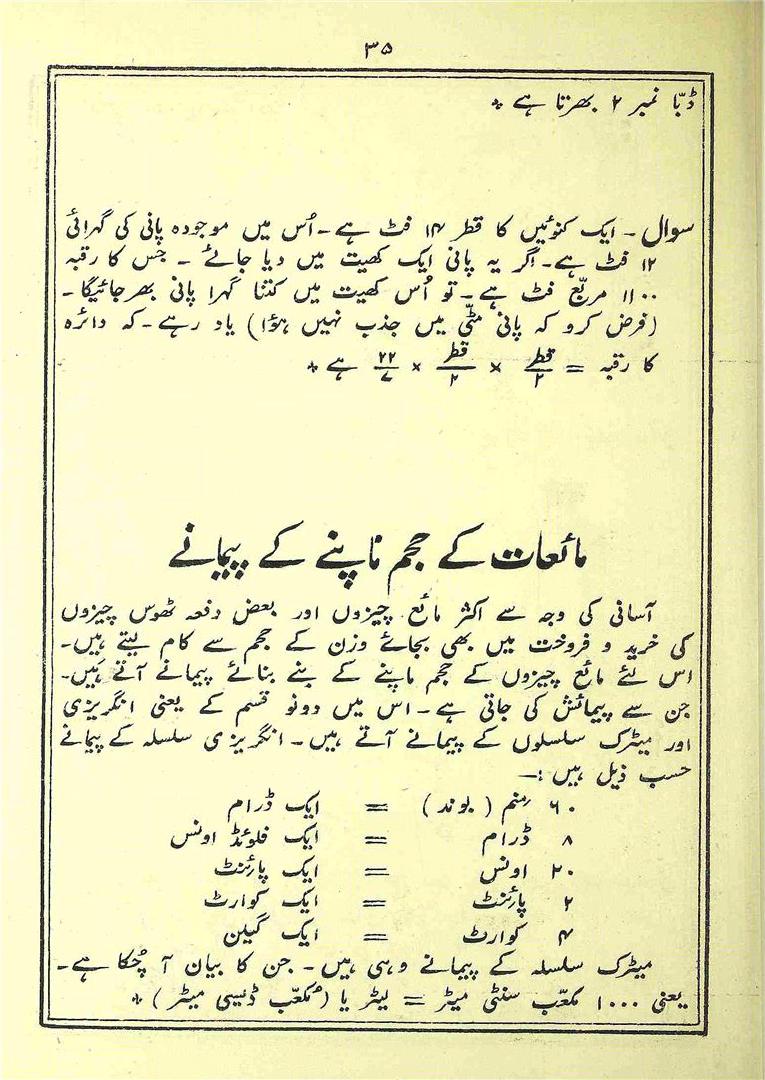 ۳۵
ڈبّا نمبر ۲ بھرتا ہے *
سوال - ایک کنوئیں کا قطر ۱۴ فٹ ہے - اُس میں موجودہ پانی کی گہرائی
۱۲ فٹ ہے - اگر یہ پانی ایک کھیت میں دیا جائے - جس کا رقبہ
۱۱۰۰ مربّع فٹ ہے - تو اُس کھیت میں کتنا گہرا پانی بھر جائیگا -
(فرض کرو کہ پانی مٹّی میں جذب نہیں ہؤا) یاد رہے - کہ دائرہ
کا رقبہ = قطر/۲ × قطر/۲ × ۲۲/۷ ہے *
مائعات کے حجم ناپنے کے پیمانے
آسانی کی وجہ سے اکثر مائع چیزوں اور بعض دفعہ ٹھوس چیزوں
کی خرید و فروخت میں بھی بجائے وزن کے حجم سے کام لیتے ہیں -
اس لئے مائع چیزوں کے حجم ماپنے کے بنے بنائے پیمانے آتے ہیں -
جن سے پیمائش کی جاتی ہے - اس میں دونو قسم کے یعنی انگریزی
اور میٹرک سلسلوں کے پیمانے آتے ہیں - انگریزی سلسلہ کے پیمانے
حسب ذیل ہیں :—
۶۰ منم (بوند) = ایک ڈرام
۸ ڈرام = ایک فلوئڈ اونس
۲۰ اونس = ایک پائنٹ
۲ پائنٹ = ایک کوارٹ
۴ کوارٹ = ایک گیلن
میٹرک سلسلہ کے پیمانے وہی ہیں - جن کا بیان آ چُکا ہے -
یعنی ۱۰۰۰ مکعّب سنٹی میٹر = لیٹر یا (مُکعّب ڈیسی میٹر) *